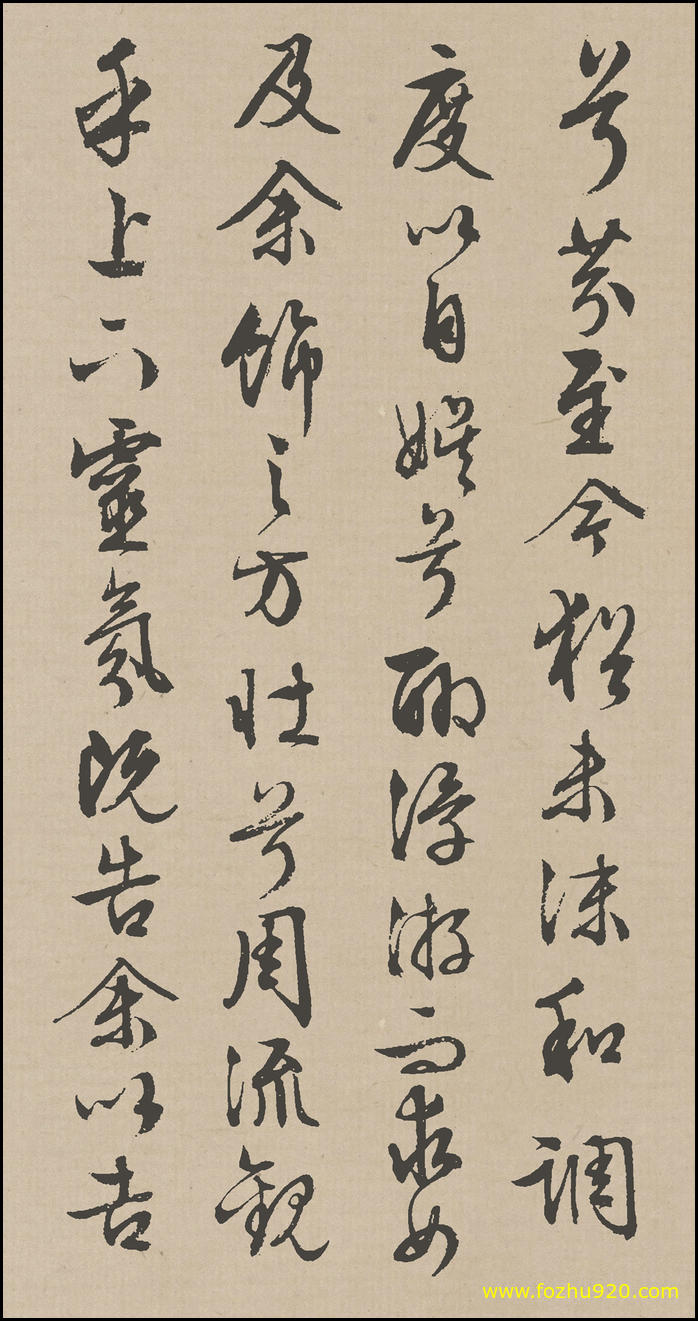 兮芬至今猶未沬和調
度以自娛兮聊浮游而求女
及余飾之方壯兮周流觀
乎上下靈氛既告余以吉
www.fozhu920.com